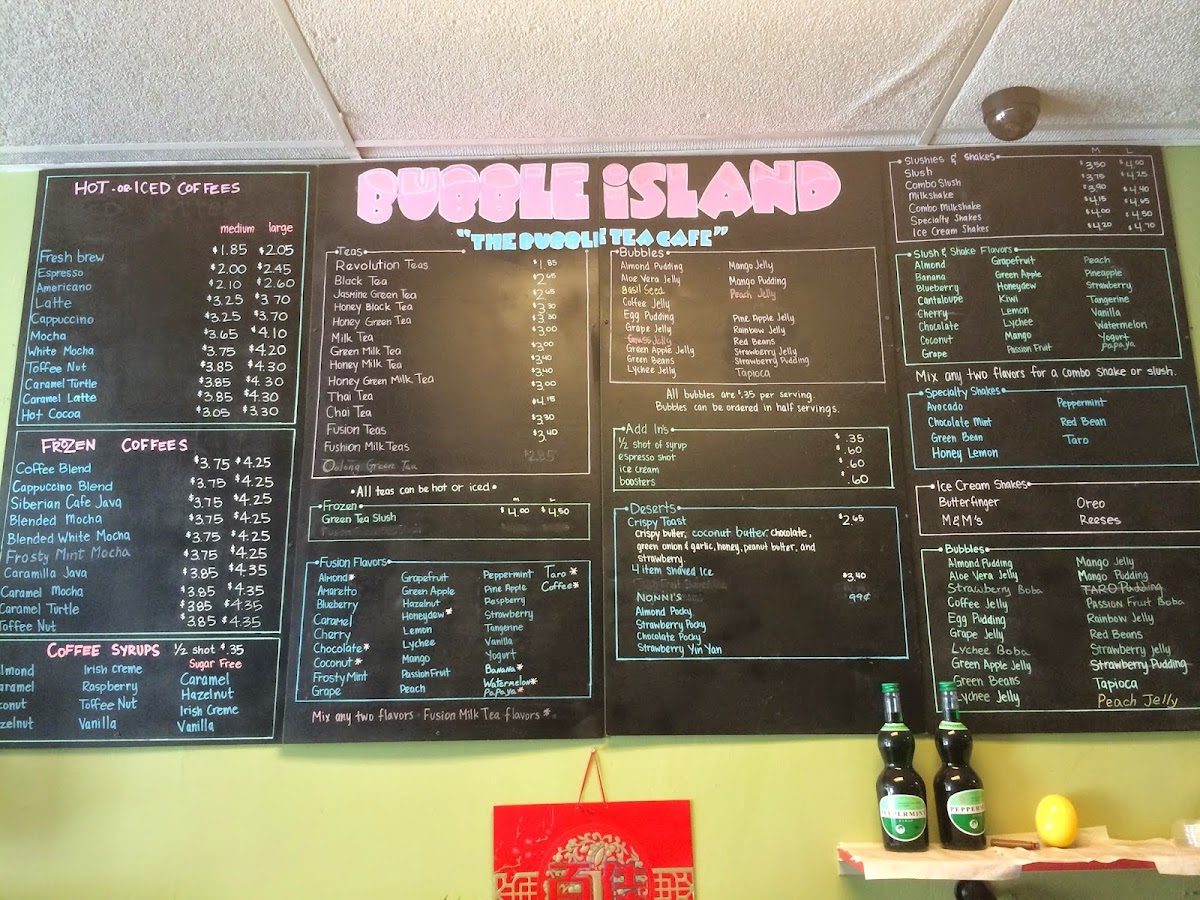 HOT -OR- ICED COFFEES
medium large
Fresh brew $1.85 $2.05
Espresso $2.00 $2.45
Americano $2.10 $2.60
Latte $3.25 $3.70
Cappuccino $3.25 $3.70
Mocha $3.65 $4.10
White Mocha $3.75 $4.20
Toffee Nut $3.85 $4.30
Caramel Turtle $3.85 $4.30
Caramel Latte $3.85 $4.30
Hot Cocoa $3.05 $3.30
FROZEN COFFEES
Coffee Blend $3.75 $4.25
Cappuccino Blend $3.75 $4.25
Siberian Cafe Java $3.75 $4.25
Blended Mocha $3.75 $4.25
Blended White Mocha $3.75 $4.25
Frosty Mint Mocha $3.75 $4.25
Caramilla Java $3.85 $4.35
Caramel Mocha $3.85 $4.35
Caramel Turtle $3.85 $4.35
Toffee Nut $3.85 $4.35
COFFEE SYRUPS 1/2 shot $.35
Sugar Free
almond Irish Creme Caramel
aramel Raspberry Hazelnut
conut Toffee Nut Irish Creme
zelnut Vanilla Vanilla
BUBBLE iSLAND
"THE BUBBLE TEA CAFE"
Teas
Revolution Teas $1.85
Black Tea $2.65
Jasmine Green Tea $2.65
Honey Black Tea $3.30
Honey Green Tea $3.30
Milk Tea $3.00
Green Milk Tea $3.00
Honey Milk Tea $3.40
Honey Green Milk Tea $3.40
Thai Tea $3.00
Chai Tea $4.15
Fusion Teas $3.30
Fushion Milk Teas $3.40
Oolong Green Tea $2.85
• All teas can be hot or iced •
Frozen M L
Green Tea Slush $4.00 $4.50
Fusion Flavors
Almond* Grapefruit Peppermint Taro*
Amaretto Green Apple Pine Apple Coffee*
Blueberry Hazelnut Raspberry
Caramel Honeydew* Strawberry
Cherry Lemon Tangerine
Chocolate* Lychee Vanilla
Coconut* Mango Yogurt
Frosty Mint Passion Fruit Banana*
Grape Peach Watermelon*
Papaya*
Mix any two flavors · Fusion Milk Tea flavors*
Bubbles
Almond Pudding Mango Jelly
Aloe Vera Jelly Mango Pudding
Basil Seed Peach Jelly
Coffee Jelly
Egg Pudding Pine Apple Jelly
Grape Jelly Rainbow Jelly
Grass Jelly Red Beans
Green Apple Jelly Strawberry Jelly
Green Beans Strawberry Pudding
Lychee Jelly Tapioca
All bubbles are $.35 per serving.
Bubbles can be ordered in half servings.
Add In's
1/2 shot of syrup $.35
espresso shot $.60
ice cream $.60
boosters $.60
Deserts
Crispy Toast $2.65
crispy butter, coconut butter, chocolate,
green onion & garlic, honey, peanut butter, and
strawberry.
4 item shaved Ice $3.40
NONNI'S 99¢
Almond Pocky
Strawberry Pocky
Chocolate Pocky
Strawberry Yun Yan
Slushies & Shakes M L
Slush $3.50 $4.00
Combo Slush $3.70 $4.25
Milkshake $3.90 $4.40
Combo Milkshake $4.15 $4.65
Specialty Shakes $4.00 $4.50
Ice Cream Shakes $4.20 $4.70
Slush & Shake Flavors
Almond Grapefruit Peach
Banana Green Apple Pineapple
Blueberry Honeydew Strawberry
Cantaloupe Kiwi Tangerine
Cherry Lemon Vanilla
Chocolate Lychee Watermelon
Coconut Mango Yogurt
Grape Passion Fruit Papaya
Mix any two flavors for a combo shake or slush.
Specialty Shakes
Avocado Peppermint
Chocolate Mint Red Bean
Green Bean Taro
Honey Lemon
Ice Cream Shakes
Butterfinger Oreo
M&M's Reeses
Bubbles
Almond Pudding Mango Jelly
Aloe Vera Jelly Mango Pudding
Strawberry Boba TARO Pudding
Coffee Jelly Passion Fruit Boba
Egg Pudding Rainbow Jelly
Grape Jelly Red Beans
Lychee Boba Strawberry Jelly
Green Apple Jelly Strawberry Pudding
Green Beans Tapioca
Lychee Jelly Peach Jelly
PEPPERMINT
PEPPERM
百佳